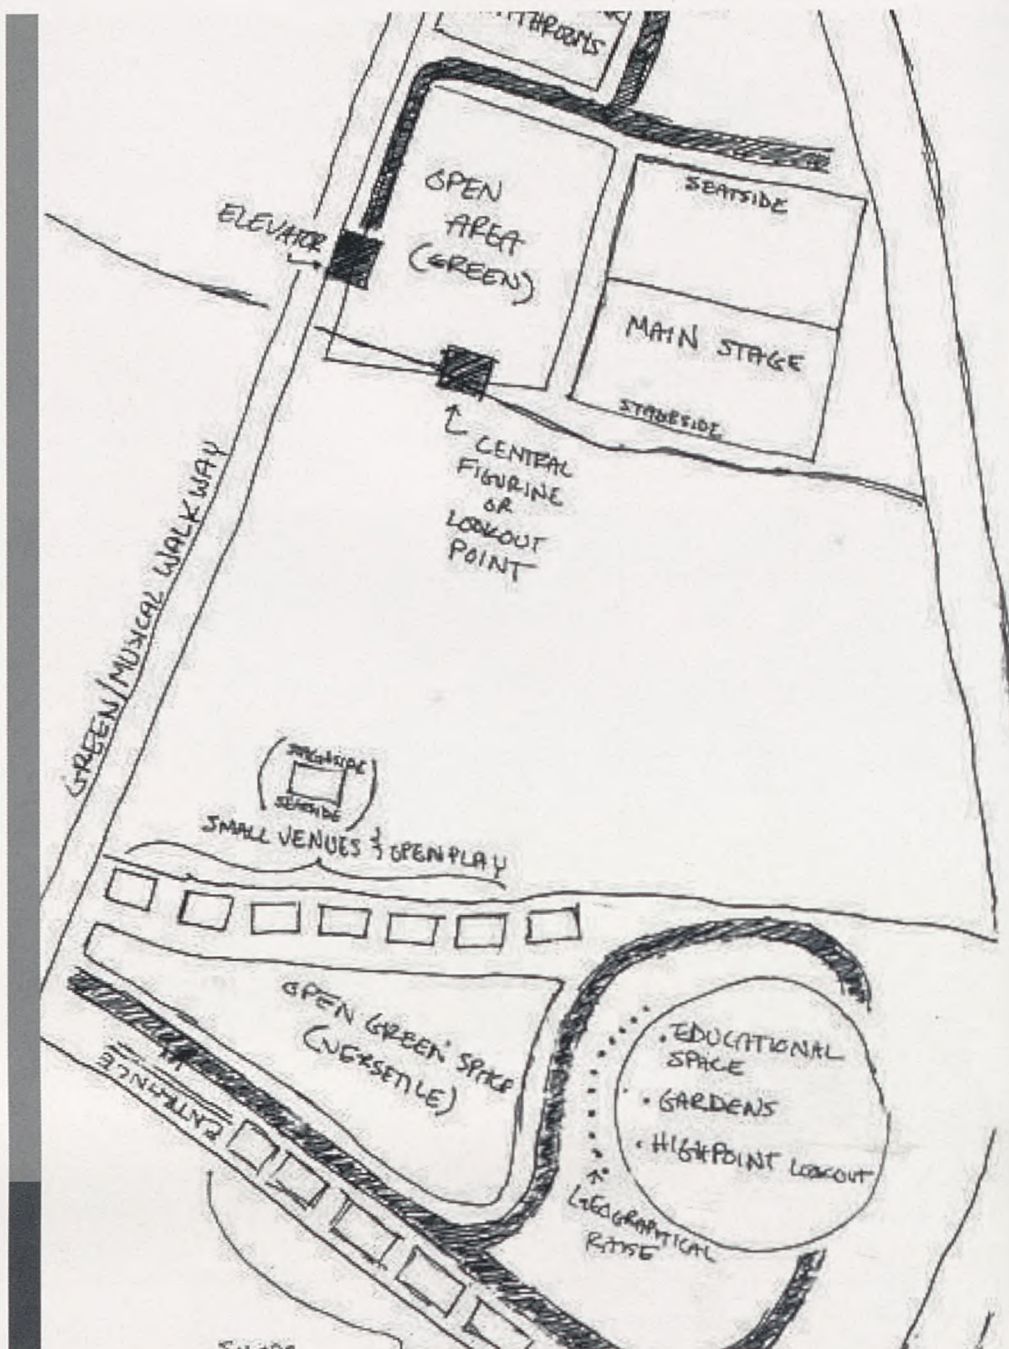 THROOMS
SEATSIDE
OPEN
AREA
(GREEN)
ELEVATOR
MAIN STAGE
STAGESIDE
CENTRAL
FIGURINE
OR
LOOKOUT
POINT
GREEN/MUSICAL WALKWAY
STAGESIDE
SEATSIDE
SMALL VENUES & OPEN PLAY
OPEN GREEN SPACE
(VERSETILE)
ENTRANCE
• EDUCATIONAL
SPACE
• GARDENS
• HIGHPOINT LOOKOUT
GEOGRAPHICAL
RAISE